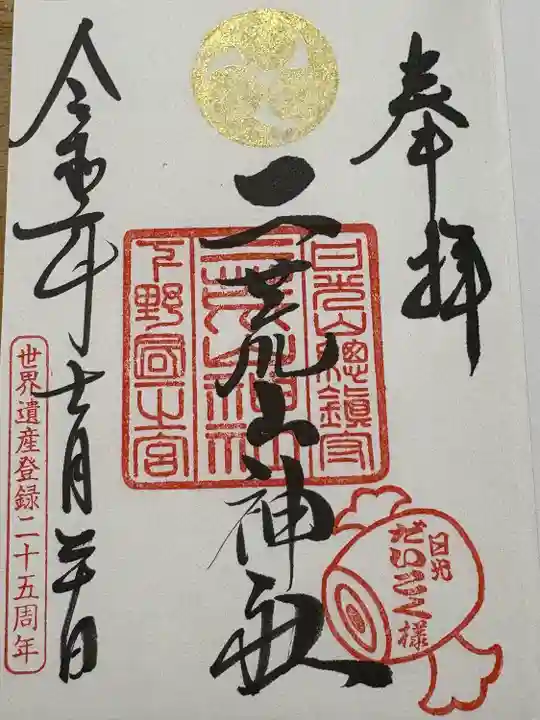 奉拝
日光山總鎮守
二荒山神社
二荒山神社
下野國一之宮
日光
だいこく様
令和
世界遺産登録二十五周年